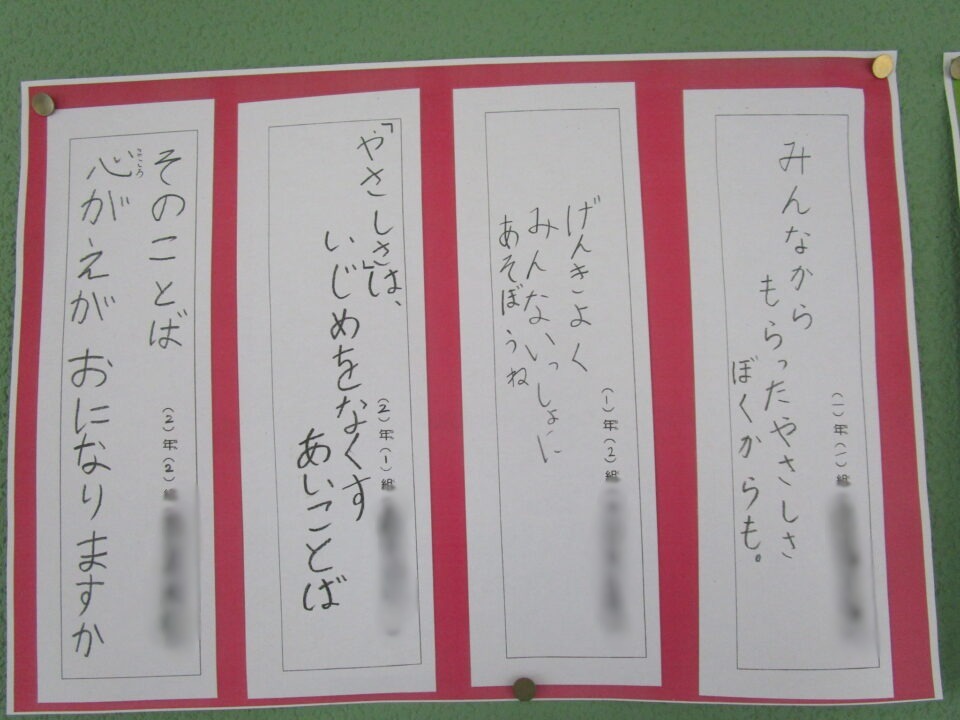 みんなから
もらったやさしさ
ぼくからも。
(一)年(一)組
げんきよく
みんないっしょに
あそぼうね
(1)年(2)組
「やさしさ」は、
いじめをなくす
あいことば
(2)年(1)組
そのことば
心がえがおになりますか
(2)年(2)組